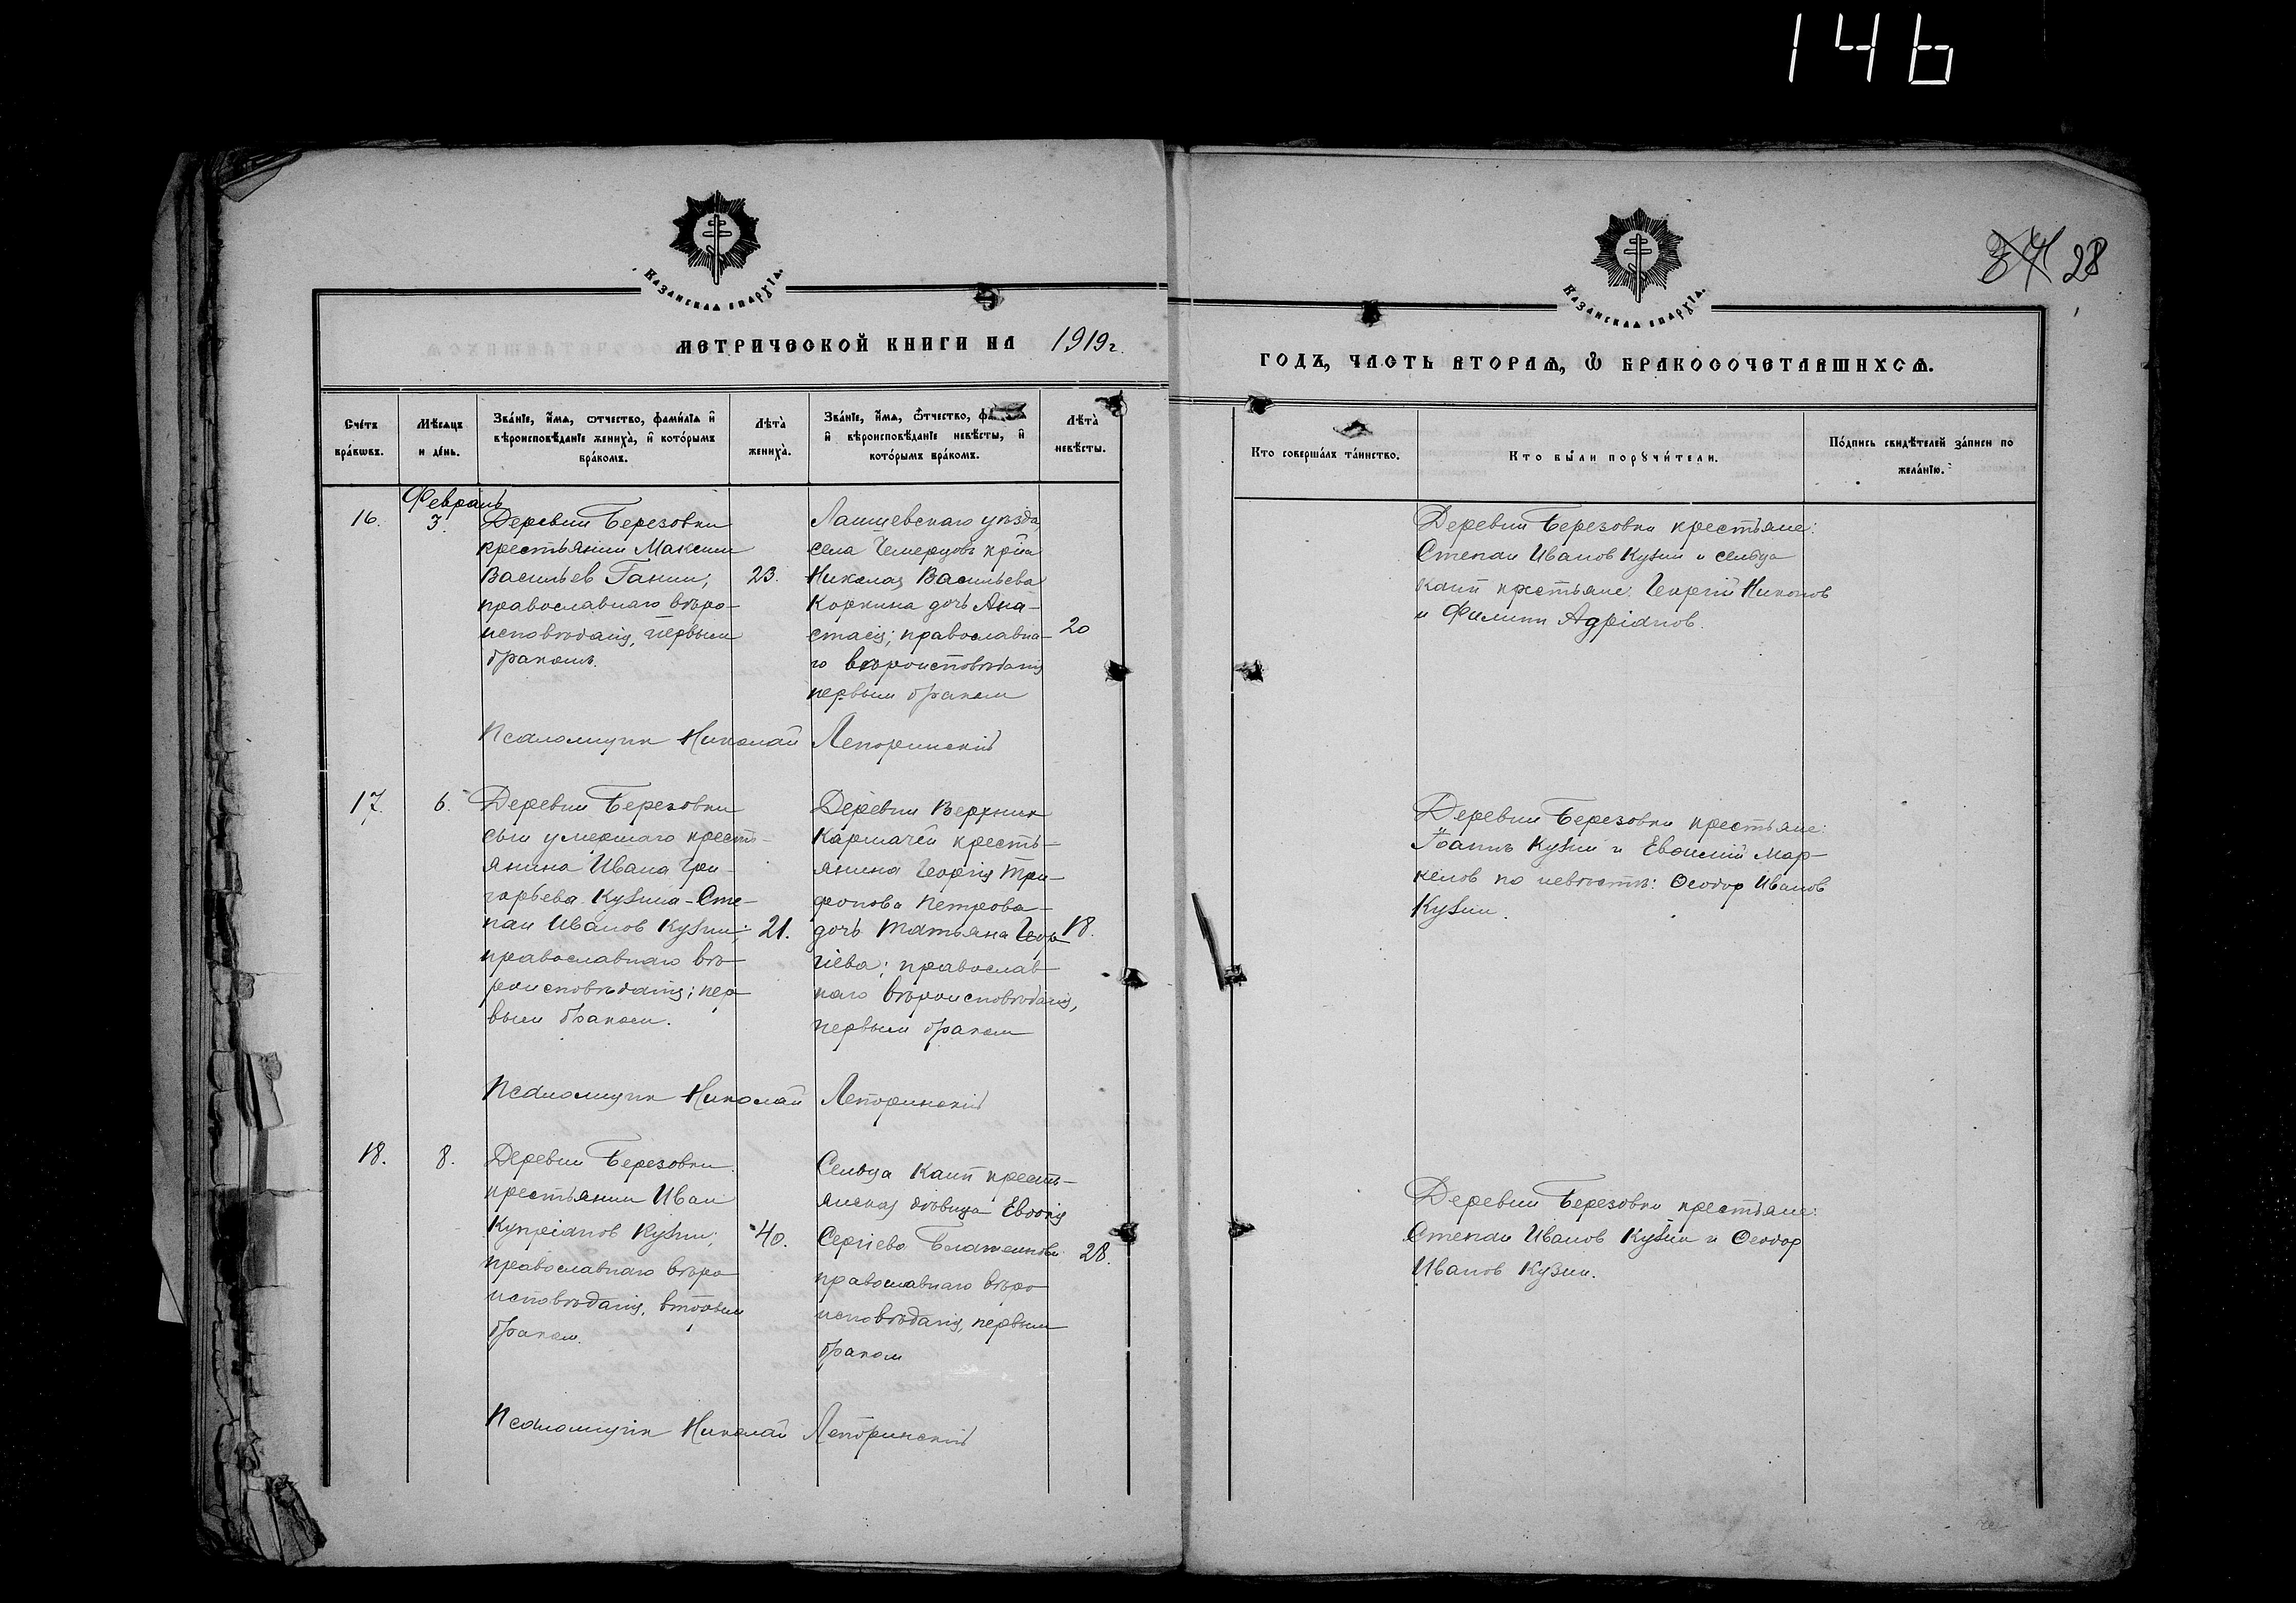 146
Казанская епархія.
Казанская епархія.
34 28
метрической книги на 1919 г.
годъ, часть вторая, ѡ бракосочетавшихсѧ.
Счетъ браковъ.
Мѣсяцъ и день.
Званіе, имя, отчество, фамилія и вѣроисповѣданіе жениха, и которымъ бракомъ.
Лѣта жениха.
Званіе, имя, отчество, фамилія и вѣроисповѣданіе невѣсты, и которымъ бракомъ.
Лѣта невѣсты.
Кто совершалъ таинство.
Кто были поручители.
Подпись свидѣтелей записи по желанію.
Февраль
16.
3.
Деревни Березовки
крестьянин Максим
Васильев Ганин;
православнаго вѣро-
исповѣданія, первым
бракомъ.
23.
Лаишевскаго уѣзда
села Чемерцовъ кр-на
Николая Васильева
Коркина дочь Ана-
стасія; православна-
го вѣроисповѣданія
первым браком
20
Деревни Березовки крестьяне:
Степан Иванов Кузин и сельца
Каип крестьяне: Георгій Никонов
и Филипп Адріанов.
Псаломщик Николай Лепоринскій
17.
6.
Деревни Березовки
сын умершаго кресть-
янина Ивана Гри-
горьева Кузина - Сте-
пан Иванов Кузин;
православнаго вѣ-
роисповѣданія; пер
вым браком.
21.
Деревни Верхних
Кармачей кресть-
янина Георгія Три-
фонова Петрова-
дочь Татьяна Геор
гіева; православ-
наго вѣроисповѣданія,
первым браком
18.
Деревни Березовки крестьяне:
Іоаннъ Кузин и Евѳимій Мар-
келов по невѣстѣ: Ѳеодор Иванов
Кузин.
Псаломщик Николай Лепоринскій
18.
8.
Деревни Березовки
крестьянин Иван
Купріанов Кузин;
православнаго вѣро
исповѣданія, вторым
браком.
40.
Сельца Каип кресть-
янская дѣвица Евдокія
Сергіева Блаженкова
православнаго вѣро
исповѣданія, первым
браком
28.
Деревни Березовки крестьяне:
Степан Иванов Кузин и Ѳеодор
Иванов Кузин.
Псаломщик Николай Лепоринскій